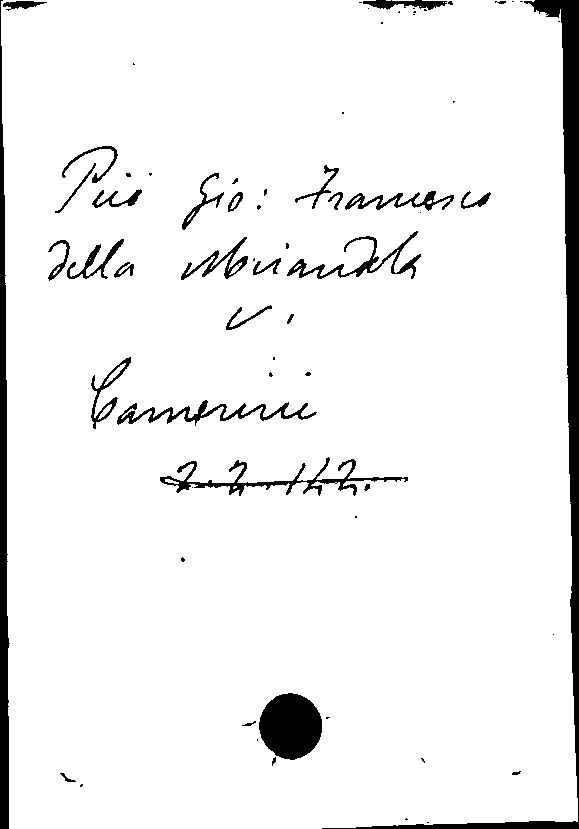 Pico Gio: Francesco
della Mirandola
V.
Camerini
2.2.142.